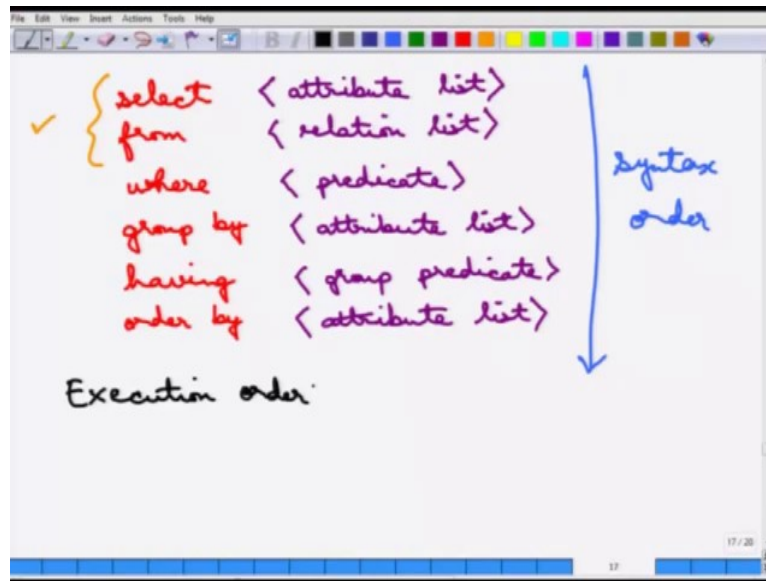 File Edit View Insert Actions Tools Help
B I
select < attribute list >
from < relation list >
where < predicate >
group by < attribute list >
having < group predicate >
order by < attribute list >
syntax
order
Execution order
17 / 20
17